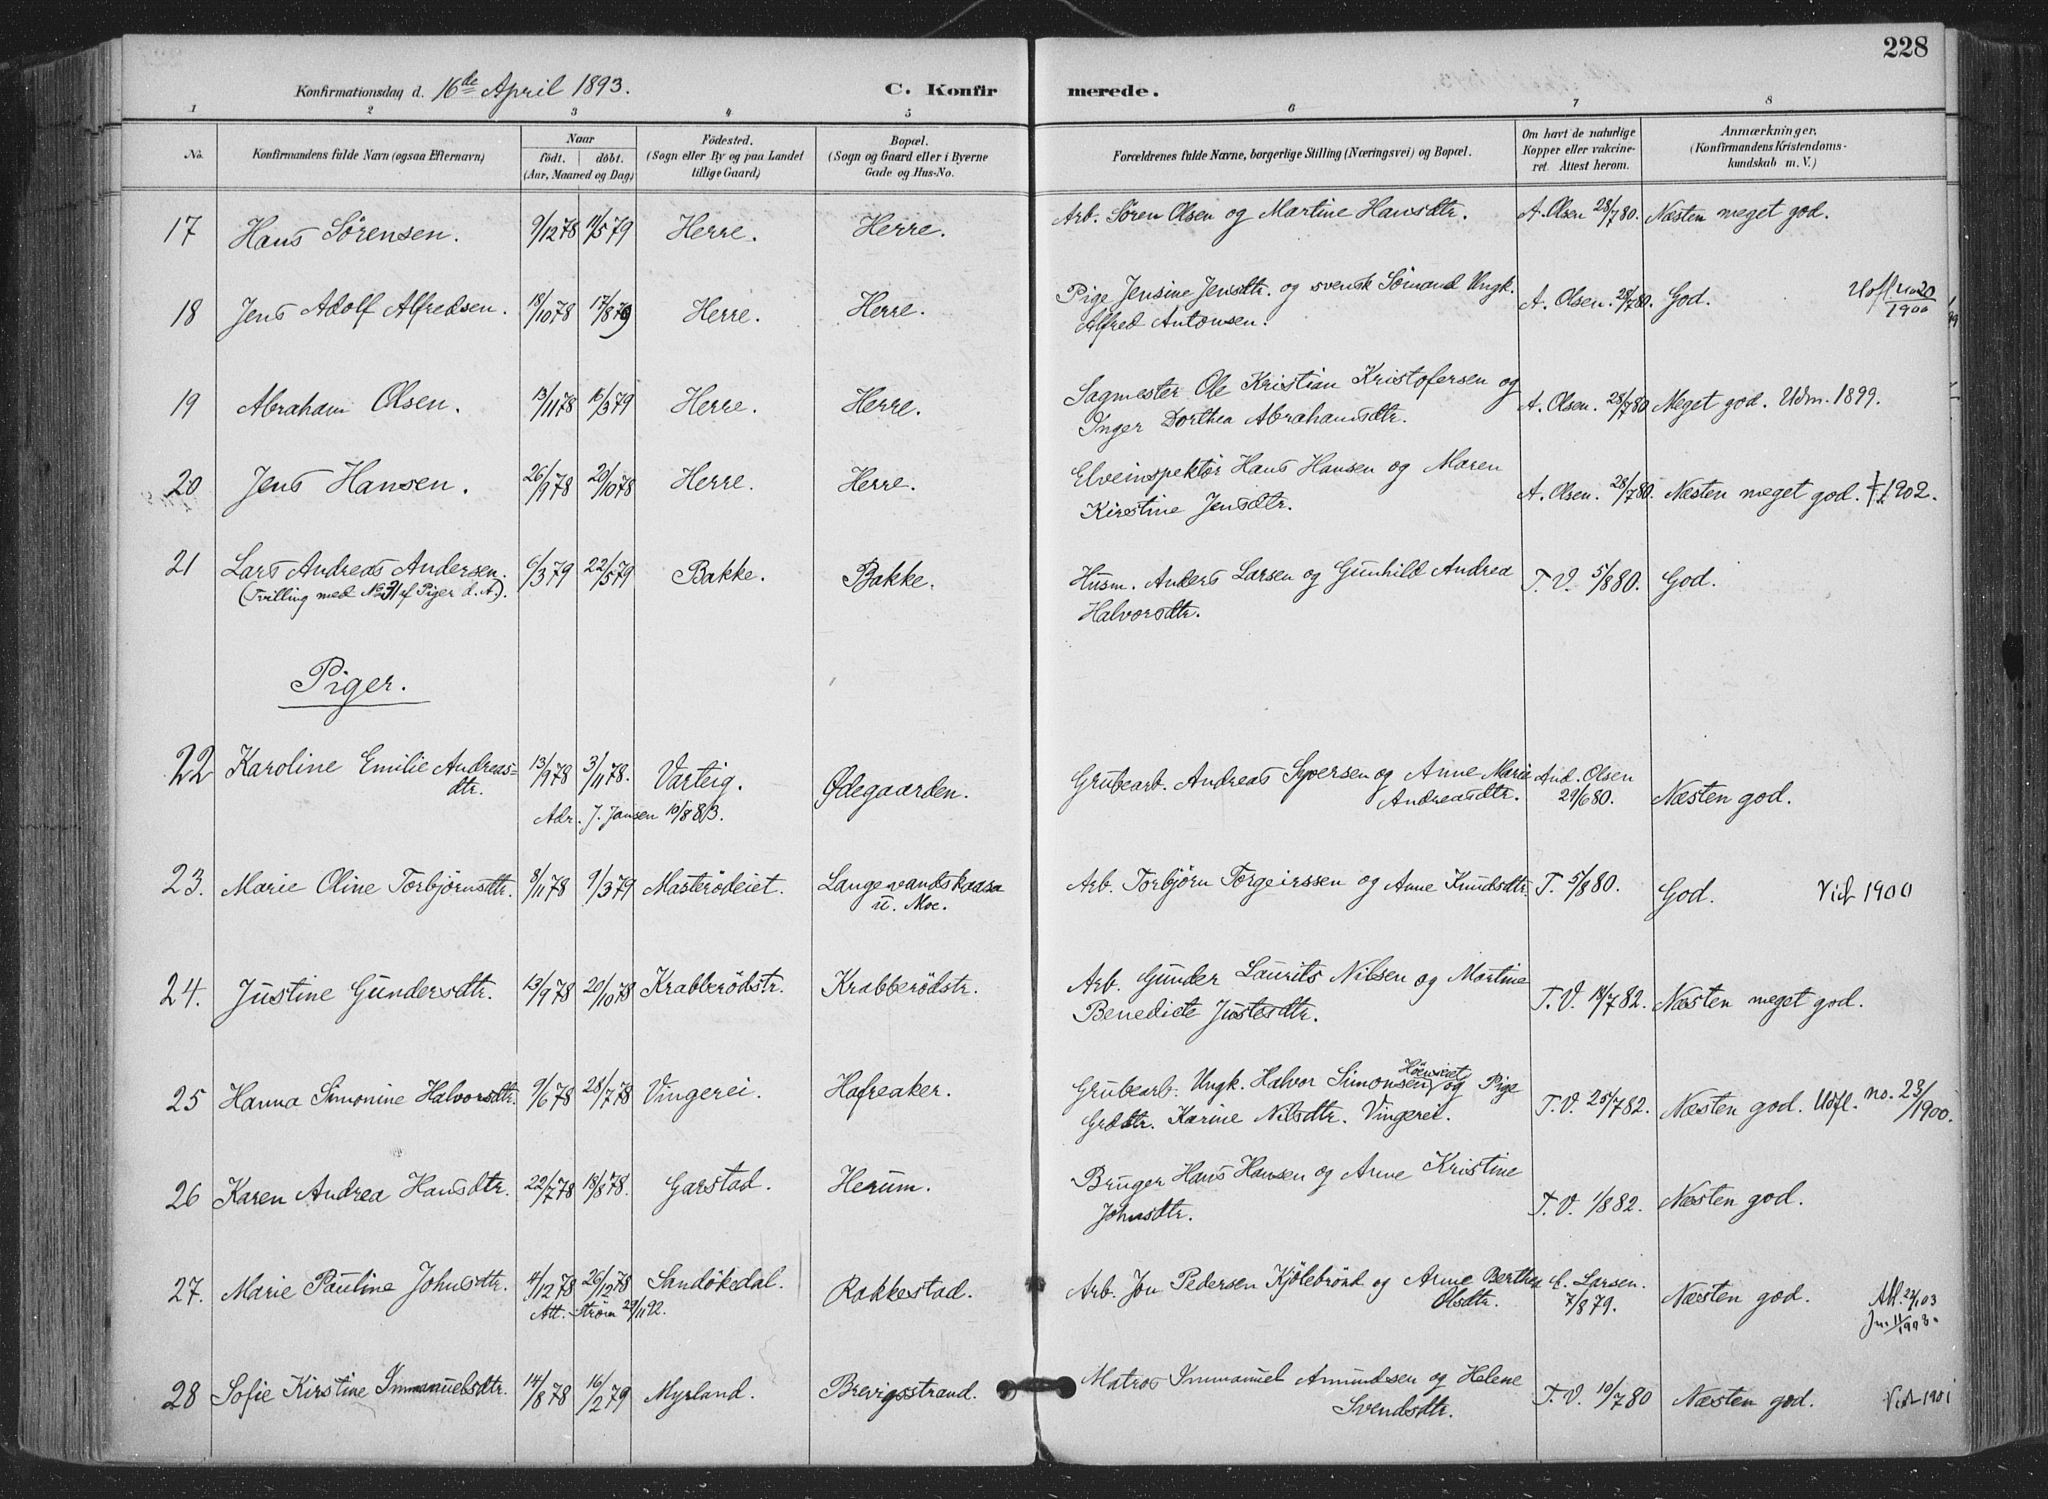 228
Konfirmationsdag d. 16de April 1893. C. Konfirmerede.
1 2 3 4 5 6 7 8
No. Konfirmandens fulde Navn (ogsaa Efternavn) Naar födt. döbt. (Aar, Maaned og Dag) Födested. (Sogn eller By og paa Landet tillige Gaard) Bopæl. (Sogn og Gaard eller i Byerne Gade og Hus-No. Forældrenes fulde Navne, borgerlige Stilling (Næringsvei) og Bopæl. Om havt de naturlige Kopper eller vakcineret. Attest herom. Anmærkninger. (Konfirmandens Kristendomskundskab m. V.)
17 Hans Sörensen. 9/12 78 11/5 79 Herre. Herre. Arb. Sören Olsen og Martine Hansdtr. A. Olsen 28/7 80. Næsten meget god.
18 Jens Adolf Alfredsen. 18/10 78 17/8 79 Herre. Herre. Pige Jensine Jensdtr. og svensk Sömand Ungk. A. Olsen. 28/7 80. God. Udfl no 20/1900
Alfred Antonsen.
19 Abraham Olsen. 13/11 78 16/3 79 Herre. Herre. Sagmester Ole Kristian Kristofersen og A. Olsen. 28/7 80 Meget god. Udm. 1899.
Inger Dorthea Abrahamsdtr.
20 Jens Hansen. 26/9 78 20/10 78 Herre. Herre. Elveinspektör Hans Hansen og Maren A. Olsen. 28/7 80. Næsten meget god. † 1902.
Kirstine Jensdtr.
21 Lars Andreas Andersen. 6/3 79 22/5 79 Bakke. Bakke. Husm. Anders Larsen og Gunhild Andrea T. V. 5/8 80. God.
(Tvilling med No 31 af Piger d. A). Halvorsdtr.
Piger.
22 Karoline Emilie Andreas- 13/9 78 3/11 78. Varteig. Ødegaarden. Grubearb. Andreas Syversen og Anne Marie And. Olsen
dtr. Andreasdtr. 29/6 80. Næsten god.
Adr. J. Jansen 10/8 83.
23. Marie Oline Torbjörnsdtr. 8/11 78 9/3 79 Masterödeiet. Langevandskaasa Arb. Torbjörn Torgeirssen og Anne Knudsdtr. T. 5/8 80. God. Vid 1900
u. Moe.
24. Justine Gundersdtr. 13/9 78 20/10 78 Krabberödstr. Krabberödstr. Arb. Gunder Laurits Nilsen og Martine T. V. 18/7 82. Næsten meget god.
Benedicte Justesdtr.
25 Hanna Simonine Halvorsdtr. 9/6 78 28/7 78 Vingerei. Hafreaker. Grubearb. Ungk. Halvor Simonsen og Pige T. V. 25/7 82. Næsten god. Udfl. no. 23/1900.
Grdtr. Karine Nilsdtr. Vingerei.
26 Karen Andrea Hansdtr. 22/7 78 18/8 78. Garstad. Herum. Bruger Hans Hansen og Anne Kristine T. V. 1/8 82. Næsten god.
Johnsdtr.
27. Marie Pauline Johnsdtr. 4/12 78 26/12 78 Sandökedal. Rakkestad. Arb. Jon Pedersen Kjölebrönd og Anne Berthea Larsen. 7/8 79. Næsten god. Att. 22/1 03
Att. Ström 29/11 92. Olsdtr. Jn. 11/1903.
28 Sofie Kirstine Immanuelsdtr. 14/8 78 16/2 79 Myrland. Brevigsstrand. Matros Immanuel Amundsen og Helene T. V. 10/7 80 Næsten god. Vid 1901
Svendsdtr.